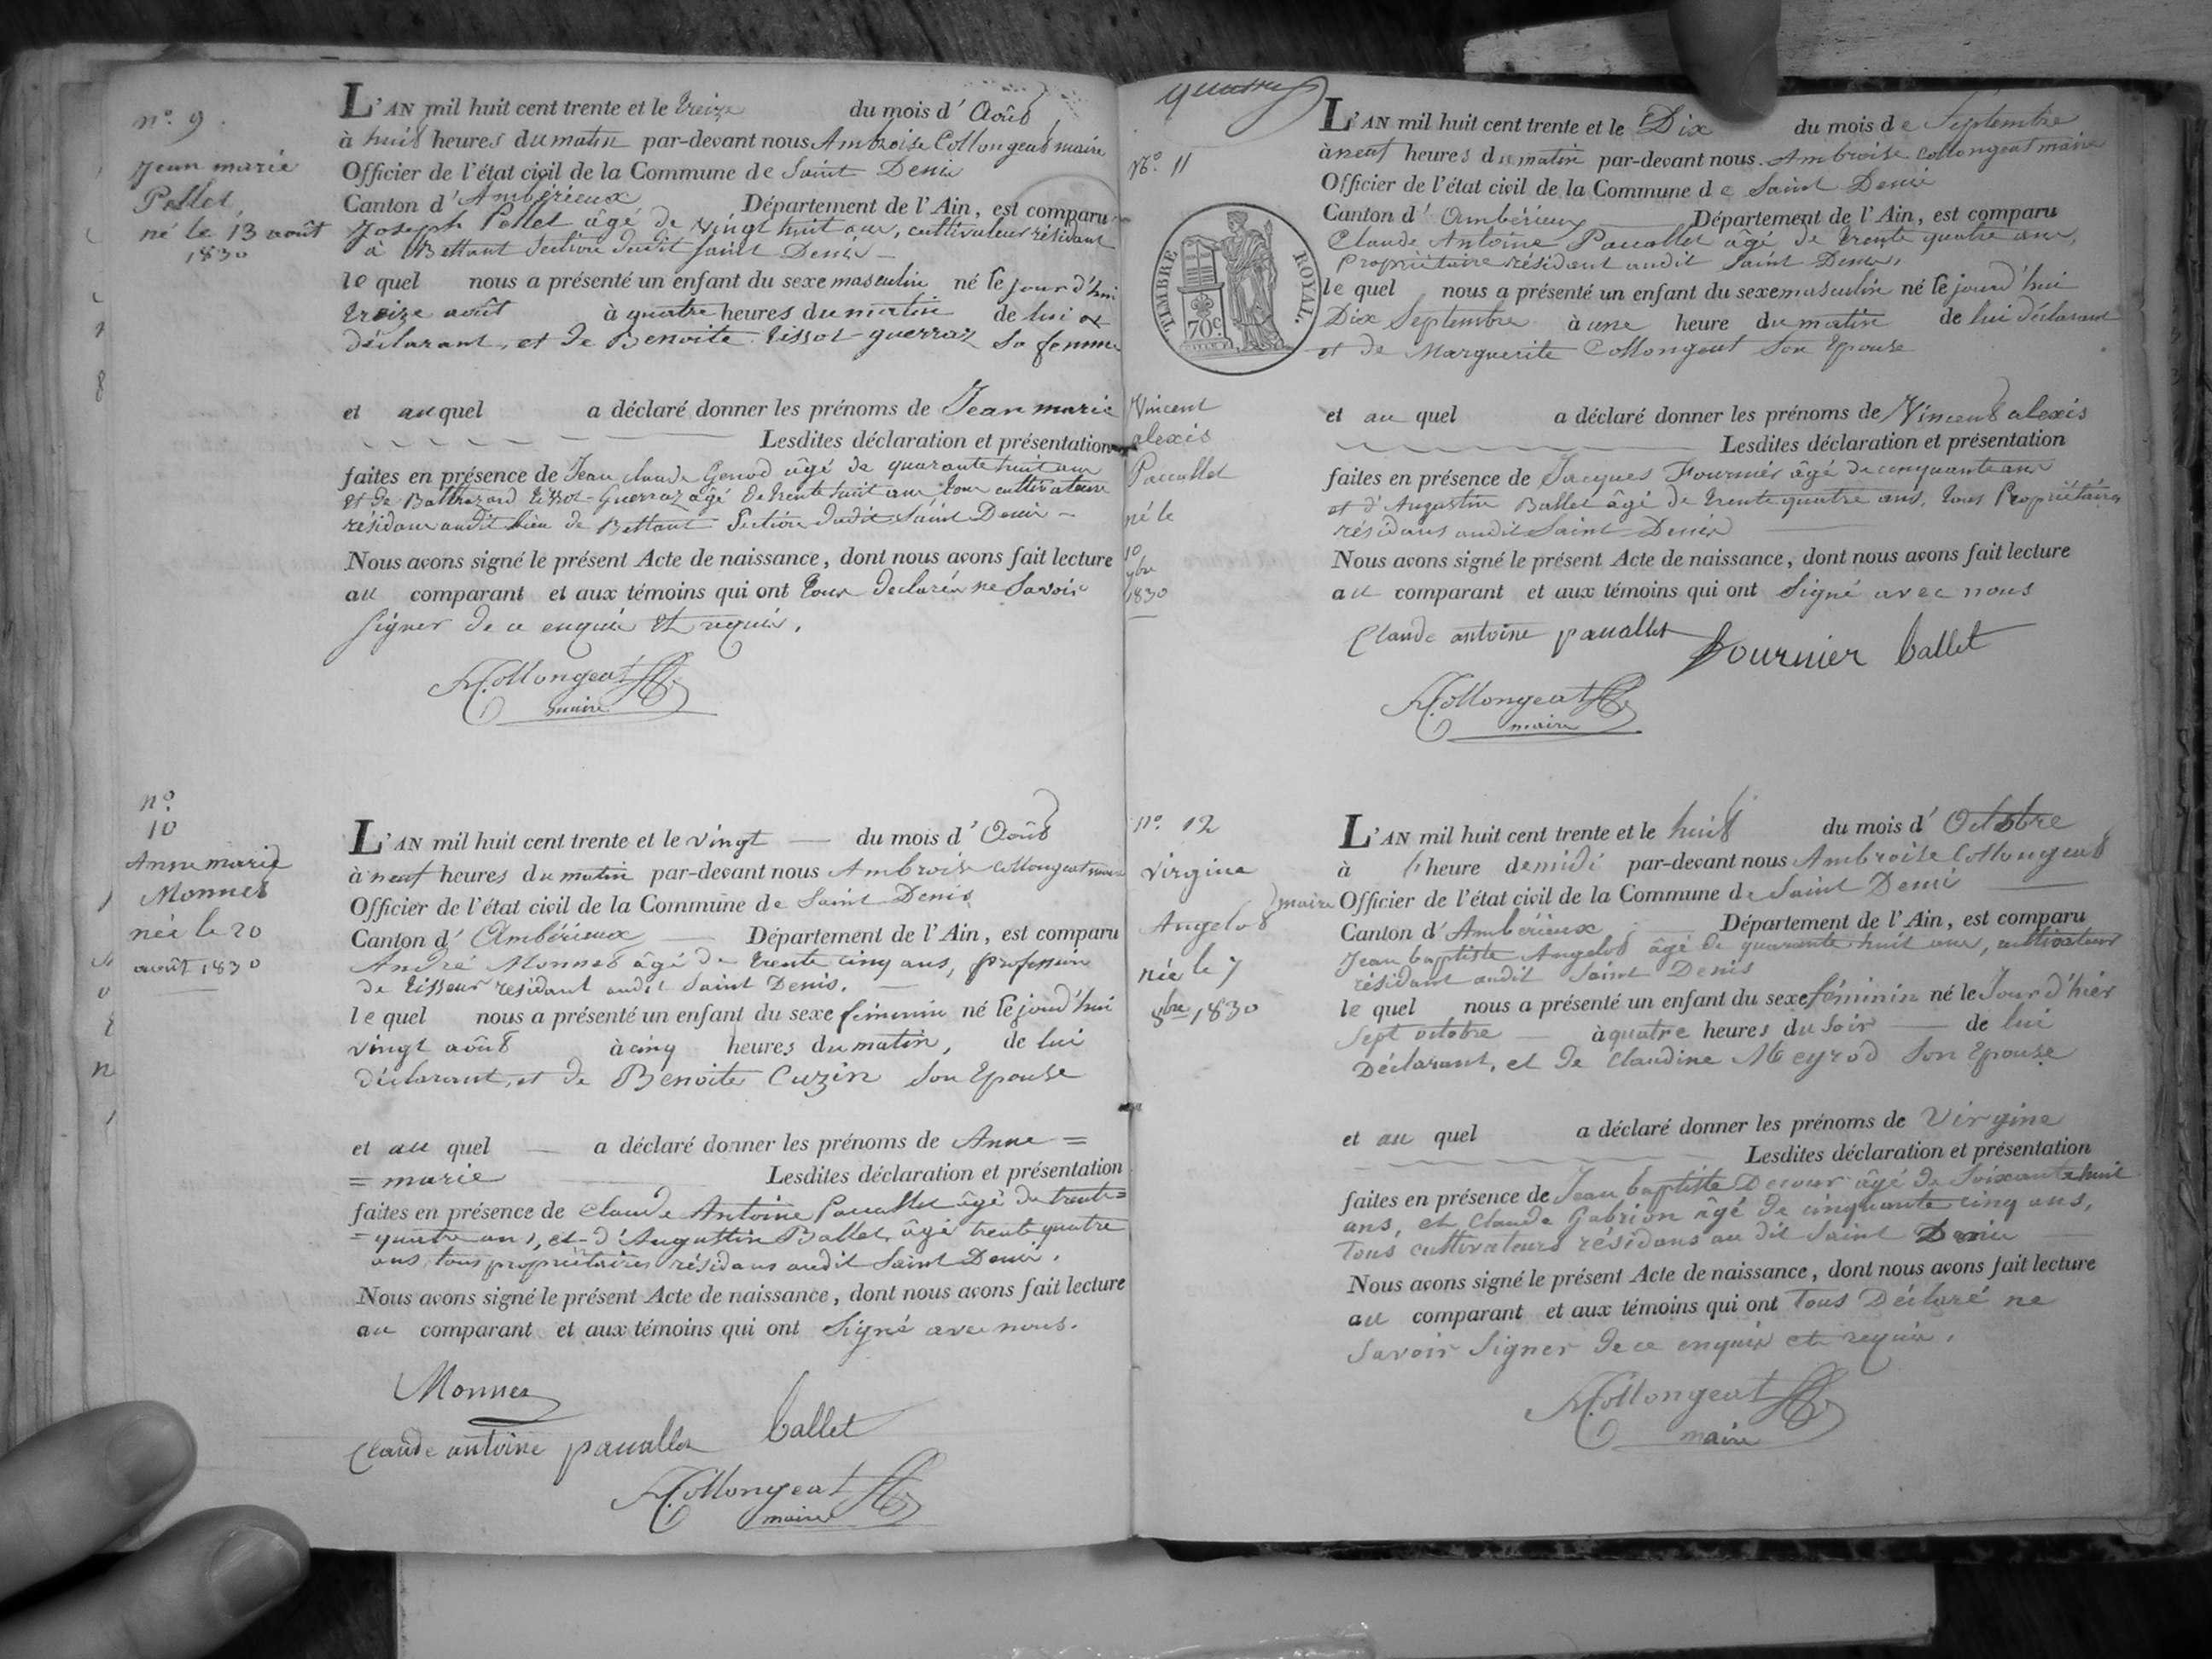 n.o 9.
Jean marie
Pellet
né le 13 août
1830
L'AN mil huit cent trente et le treize du mois d' Août
à huit heures du matin par-devant nous Ambroise Collongeat maire
Officier de l'état civil de la Commune de Saint Denis
Canton d' Ambérieux Département de l'Ain, est comparu
Joseph Pellet âgé de vingt huit ans, cultivateur résidant
à Bettant Section dudit Saint Denis
le quel nous a présenté un enfant du sexe masculin né le jour d'hui
treize août à quatre heures du matin de lui
déclarant, et de Benoite Tissot-guerraz sa femme
et au quel a déclaré donner les prénoms de Jean marie
Lesdites déclaration et présentation
faites en présence de Jean claude Genod âgé de quarante huit ans
et de Balthazard Tissot-Guerraz âgé de trente huit ans tous cultivateurs
résidans audit lieu de Bettant Section dudit Saint Denis
Nous avons signé le présent Acte de naissance, dont nous avons fait lecture
au comparant et aux témoins qui ont tous déclarés ne Savoir
Signer de ce enquis et requis.
A. Collongeat
maire
n.o
10
Anne marie
Monnet
née le 20
août 1830
L'AN mil huit cent trente et le vingt du mois d' Août
à neuf heures du matin par-devant nous Ambroise Collongeat maire
Officier de l'état civil de la Commune de Saint Denis
Canton d' Ambérieux Département de l'Ain, est comparu
André Monnet âgé de trente cinq ans, profession
de tisseur résidant audit Saint Denis.
le quel nous a présenté un enfant du sexe féminin né le jourd'hui
vingt août à cinq heures du matin, de lui
déclarant, et de Benoite Cuzin Son Epouse
et au quel a déclaré donner les prénoms de Anne =
= marie Lesdites déclaration et présentation
faites en présence de Claude Antoine Pauallet âgé de trente =
= quatre ans, et d'Augustin Ballet, âgé trente quatre
ans tous propriétaires résidans audit Saint Denis.
Nous avons signé le présent Acte de naissance, dont nous avons fait lecture
au comparant et aux témoins qui ont Signé avec nous.
Monnet
Claude antoine pauallet ballet
A. Collongeat
maire
quatre
N.o 11
TIMBRE ROYAL.
70c
Vincent
alexis
Pauallet
né le
10
9bre
1830
L'AN mil huit cent trente et le Dix du mois de Septembre
à neuf heures du matin par-devant nous Ambroise Collongeat maire
Officier de l'état civil de la Commune de Saint Denis
Canton d' Ambérieux Département de l'Ain, est comparu
Claude Antoine Pauallet âgé de trente quatre ans,
Propriétaire résidant audit Saint Denis,
le quel nous a présenté un enfant du sexe masculin né le jourd'hui
Dix Septembre à une heure du matin de lui déclarant
et de Marguerite Collongeat Son Epouse
et au quel a déclaré donner les prénoms de Vincent alexis
Lesdites déclaration et présentation
faites en présence de Jacques Fournier âgé de cinquante ans
et d'Augustin Ballet âgé de trente quatre ans, tous Propriétaires
résidans audit Saint Denis
Nous avons signé le présent Acte de naissance, dont nous avons fait lecture
au comparant et aux témoins qui ont Signé avec nous
Claude antoine pauallet fournier ballet
A. Collongeat
maire
n.o 12
Virgine
Angelot
née le 7
8bre 1830
L'AN mil huit cent trente et le huit du mois d' Octobre
à l'heure de midi par-devant nous Ambroise Collongeat
maire Officier de l'état civil de la Commune de Saint Denis
Canton d' Ambérieux Département de l'Ain, est comparu
Jean baptiste Angelot âgé de quarante huit ans, cultivateur
résidant audit Saint Denis
le quel nous a présenté un enfant du sexe féminin né le Jour d'hier
Sept octobre à quatre heures du Soir de lui
Déclarant, et de Claudine Meyrod Son Epouse
et au quel a déclaré donner les prénoms de Virgine
Lesdites déclaration et présentation
faites en présence de Jean baptiste Decour âgé de Soixante huit
ans, et Claude Gabrion âgé de cinquante cinq ans,
Tous cultivateurs résidans au dit Saint Denis
Nous avons signé le présent Acte de naissance, dont nous avons fait lecture
au comparant et aux témoins qui ont Tous Déclaré ne
Savoir Signer de ce enquis et requis.
A. Collongeat
maire